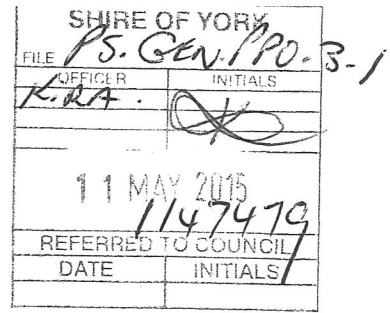 SHIRE OF YORK
FILE PS. GEN. PPO. 3-1
OFFICER INITIALS
K.RA.
11 MAY 2015
1147479
REFERRED TO COUNCIL
DATE INITIALS